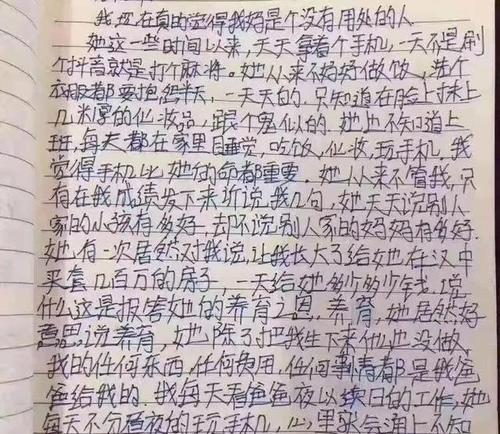 我现在真的觉得我妈是个没有用处的人
她这一些时间以来,天天拿着个手机,一天不是刷
个抖音就是打个麻将。她从来不好好做饭,洗个
衣服都要抱怨半天,一天天的.只知道在脸上抹上
几米厚的化妆品,跟个鬼似的.她也不知道上
班,每天都在家里睡觉,吃饭,化妆,玩手机.我
觉得手机比她的命都重要.她从来不管我,只
有在我成绩发下来近说我几句,她天天说别人
家的小孩有多好,却不说别人家的妈妈有多好.
她,有一次居然对我说,让我长大了给她在汉中
买套几百万的房子,一天给她多少多少钱.说
什么这是报答她的养育之恩,养育,她居然好
意思说养育,她除了把我生下来什么也没做
我的任何东西,任何费用,任何事情都是我爸
爸给我的.我每天看爸爸夜以续日的工作,她
每天不分昼夜的玩手机,心里就会涌上不知